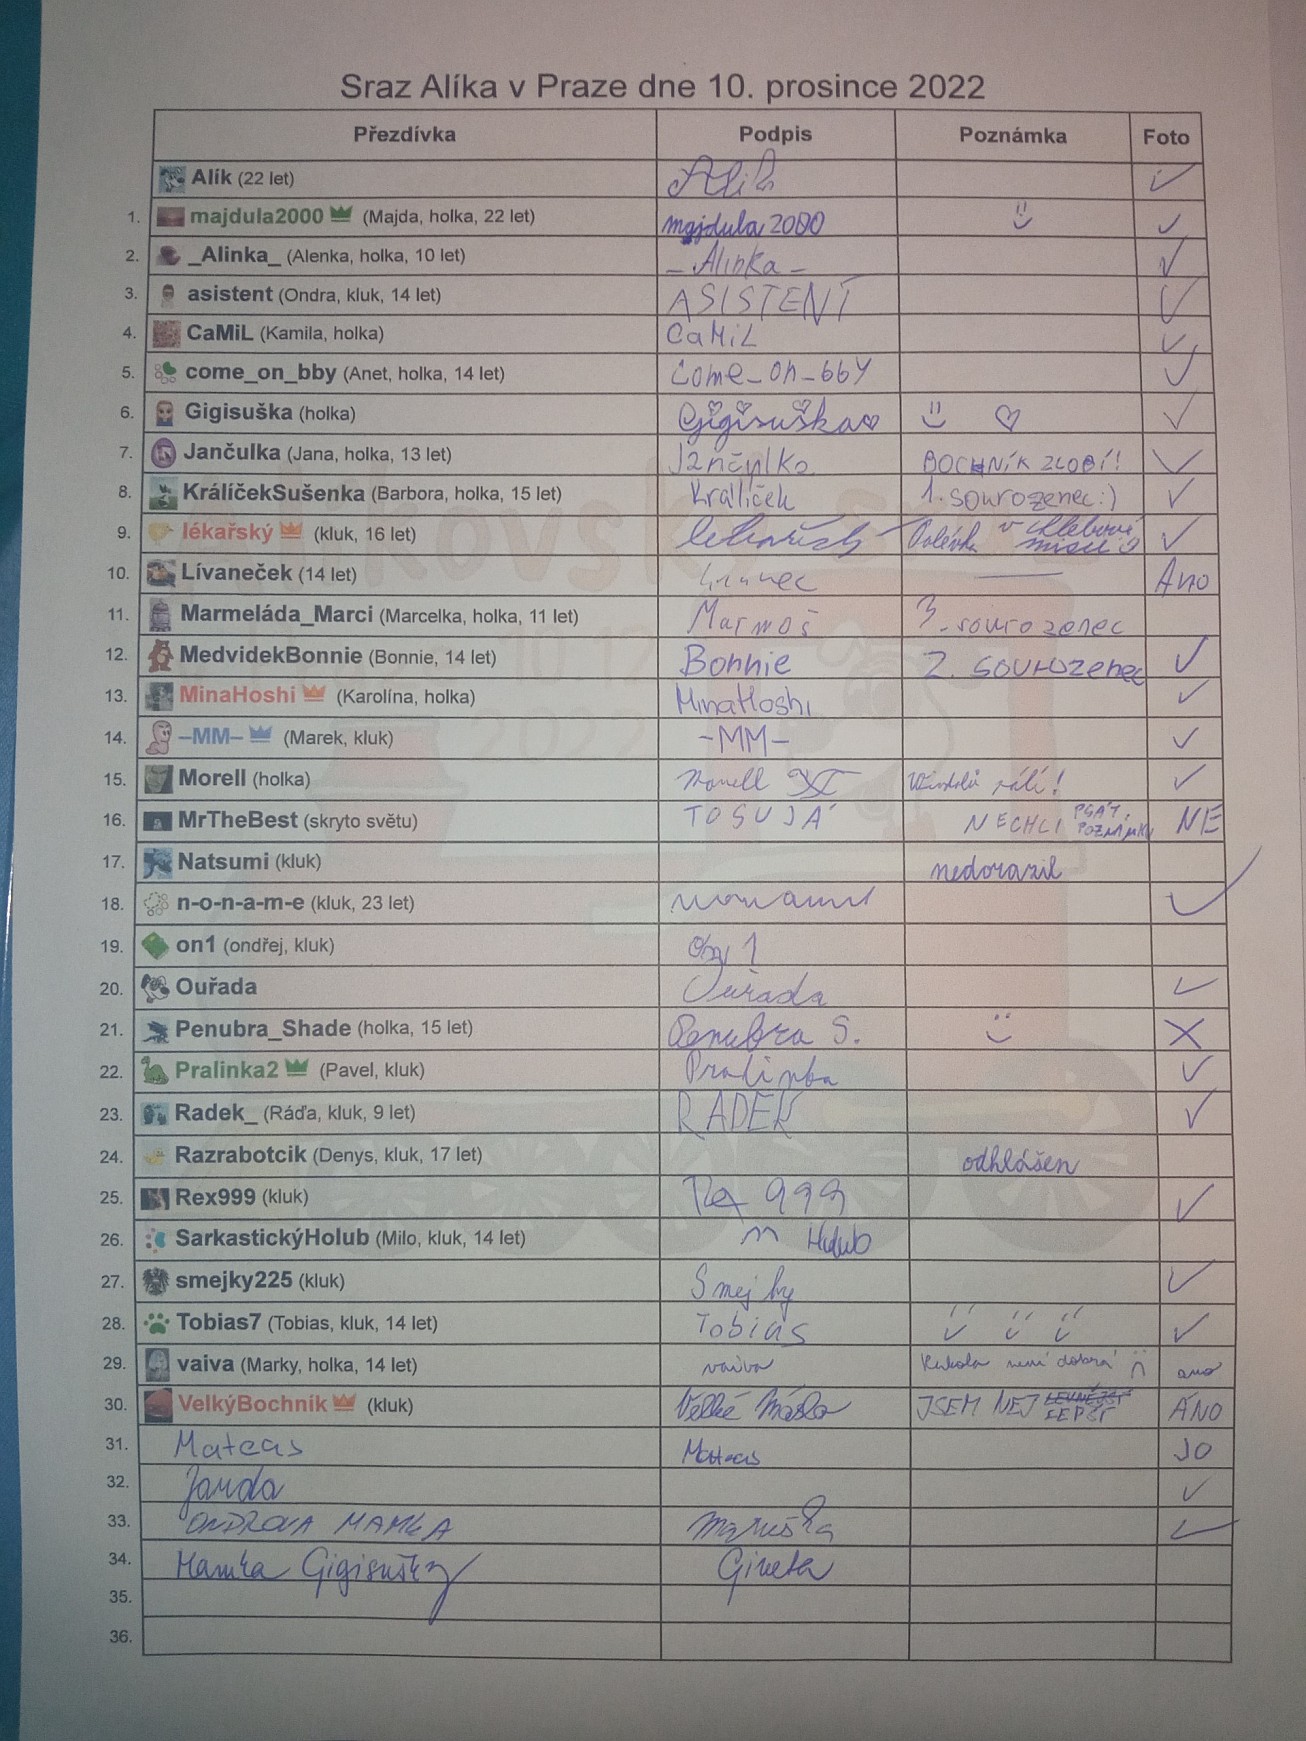 Sraz Alíka v Praze dne 10. prosince 2022
Přezdívka Podpis Poznámka Foto
Alík (22 let) Alík
1. majdula2000 (Majda, holka, 22 let) majdula2000
2. _Alinka_ (Alenka, holka, 10 let) _Alinka_
3. asistent (Ondra, kluk, 14 let) ASISTENT
4. CaMiL (Kamila, holka) CaMiL
5. come_on_bby (Anet, holka, 14 let) come_on_bby
6. Gigisuška (holka) Gigisuška
7. Jančulka (Jana, holka, 13 let) Jančulka BOCHNÍK ZLOBÍ!
8. KrálíčekSušenka (Barbora, holka, 15 let) Králíček 1. sourozenec :)
9. lékařský (kluk, 16 let) lékařský Polévka v chlebové míse
10. Lívaneček (14 let) Ano
11. Marmeláda_Marci (Marcelka, holka, 11 let) Marmoš 3. sourozenec
12. MedvidekBonnie (Bonnie, 14 let) Bonnie 2. sourozenec
13. MinaHoshi (Karolína, holka) MinaHoshi
14. –MM– (Marek, kluk) -MM-
15. Morell (holka) Morell
16. MrTheBest (skryto světu) TOSUJÁ NECHCI PSÁT POZNÁMKU NE
17. Natsumi (kluk) nedorazil
18. n-o-n-a-m-e (kluk, 23 let) noname
19. on1 (ondřej, kluk)
20. Ouřada Ouřada
21. Penubra_Shade (holka, 15 let) Penubra S. :)
22. Pralinka2 (Pavel, kluk) Pralinka
23. Radek_ (Ráďa, kluk, 9 let) RADEK
24. Razrabotcik (Denys, kluk, 17 let) odhlášen
25. Rex999 (kluk) Rex 999
26. SarkastickýHolub (Milo, kluk, 14 let) Holub
27. smejky225 (kluk) Smejky
28. Tobias7 (Tobias, kluk, 14 let) Tobias
29. vaiva (Marky, holka, 14 let) vaiva není dobrá ano
30. VelkýBochník (kluk) Velké Máslo JSEM NEJ LEPŠÍ ÁNO
31. Mateas Mateas JO
32. Janda
33. ONDROVA MAMKA Maruška
34. Mamka Gigisušky
35.
36.